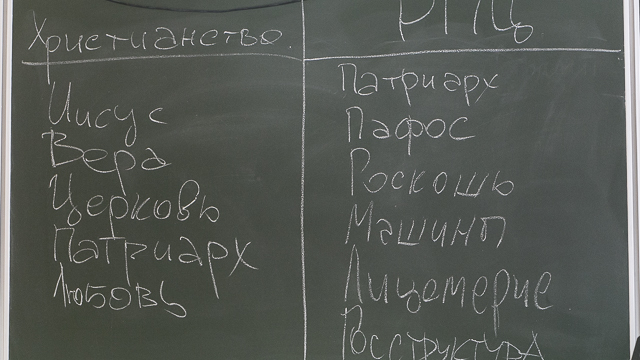 Христианство.
РПЦ
Иисус
Вера
Церковь
Патриарх
Любовь
Патриарх
Пафос
Роскошь
Машины
Лицемерие
Госструктура